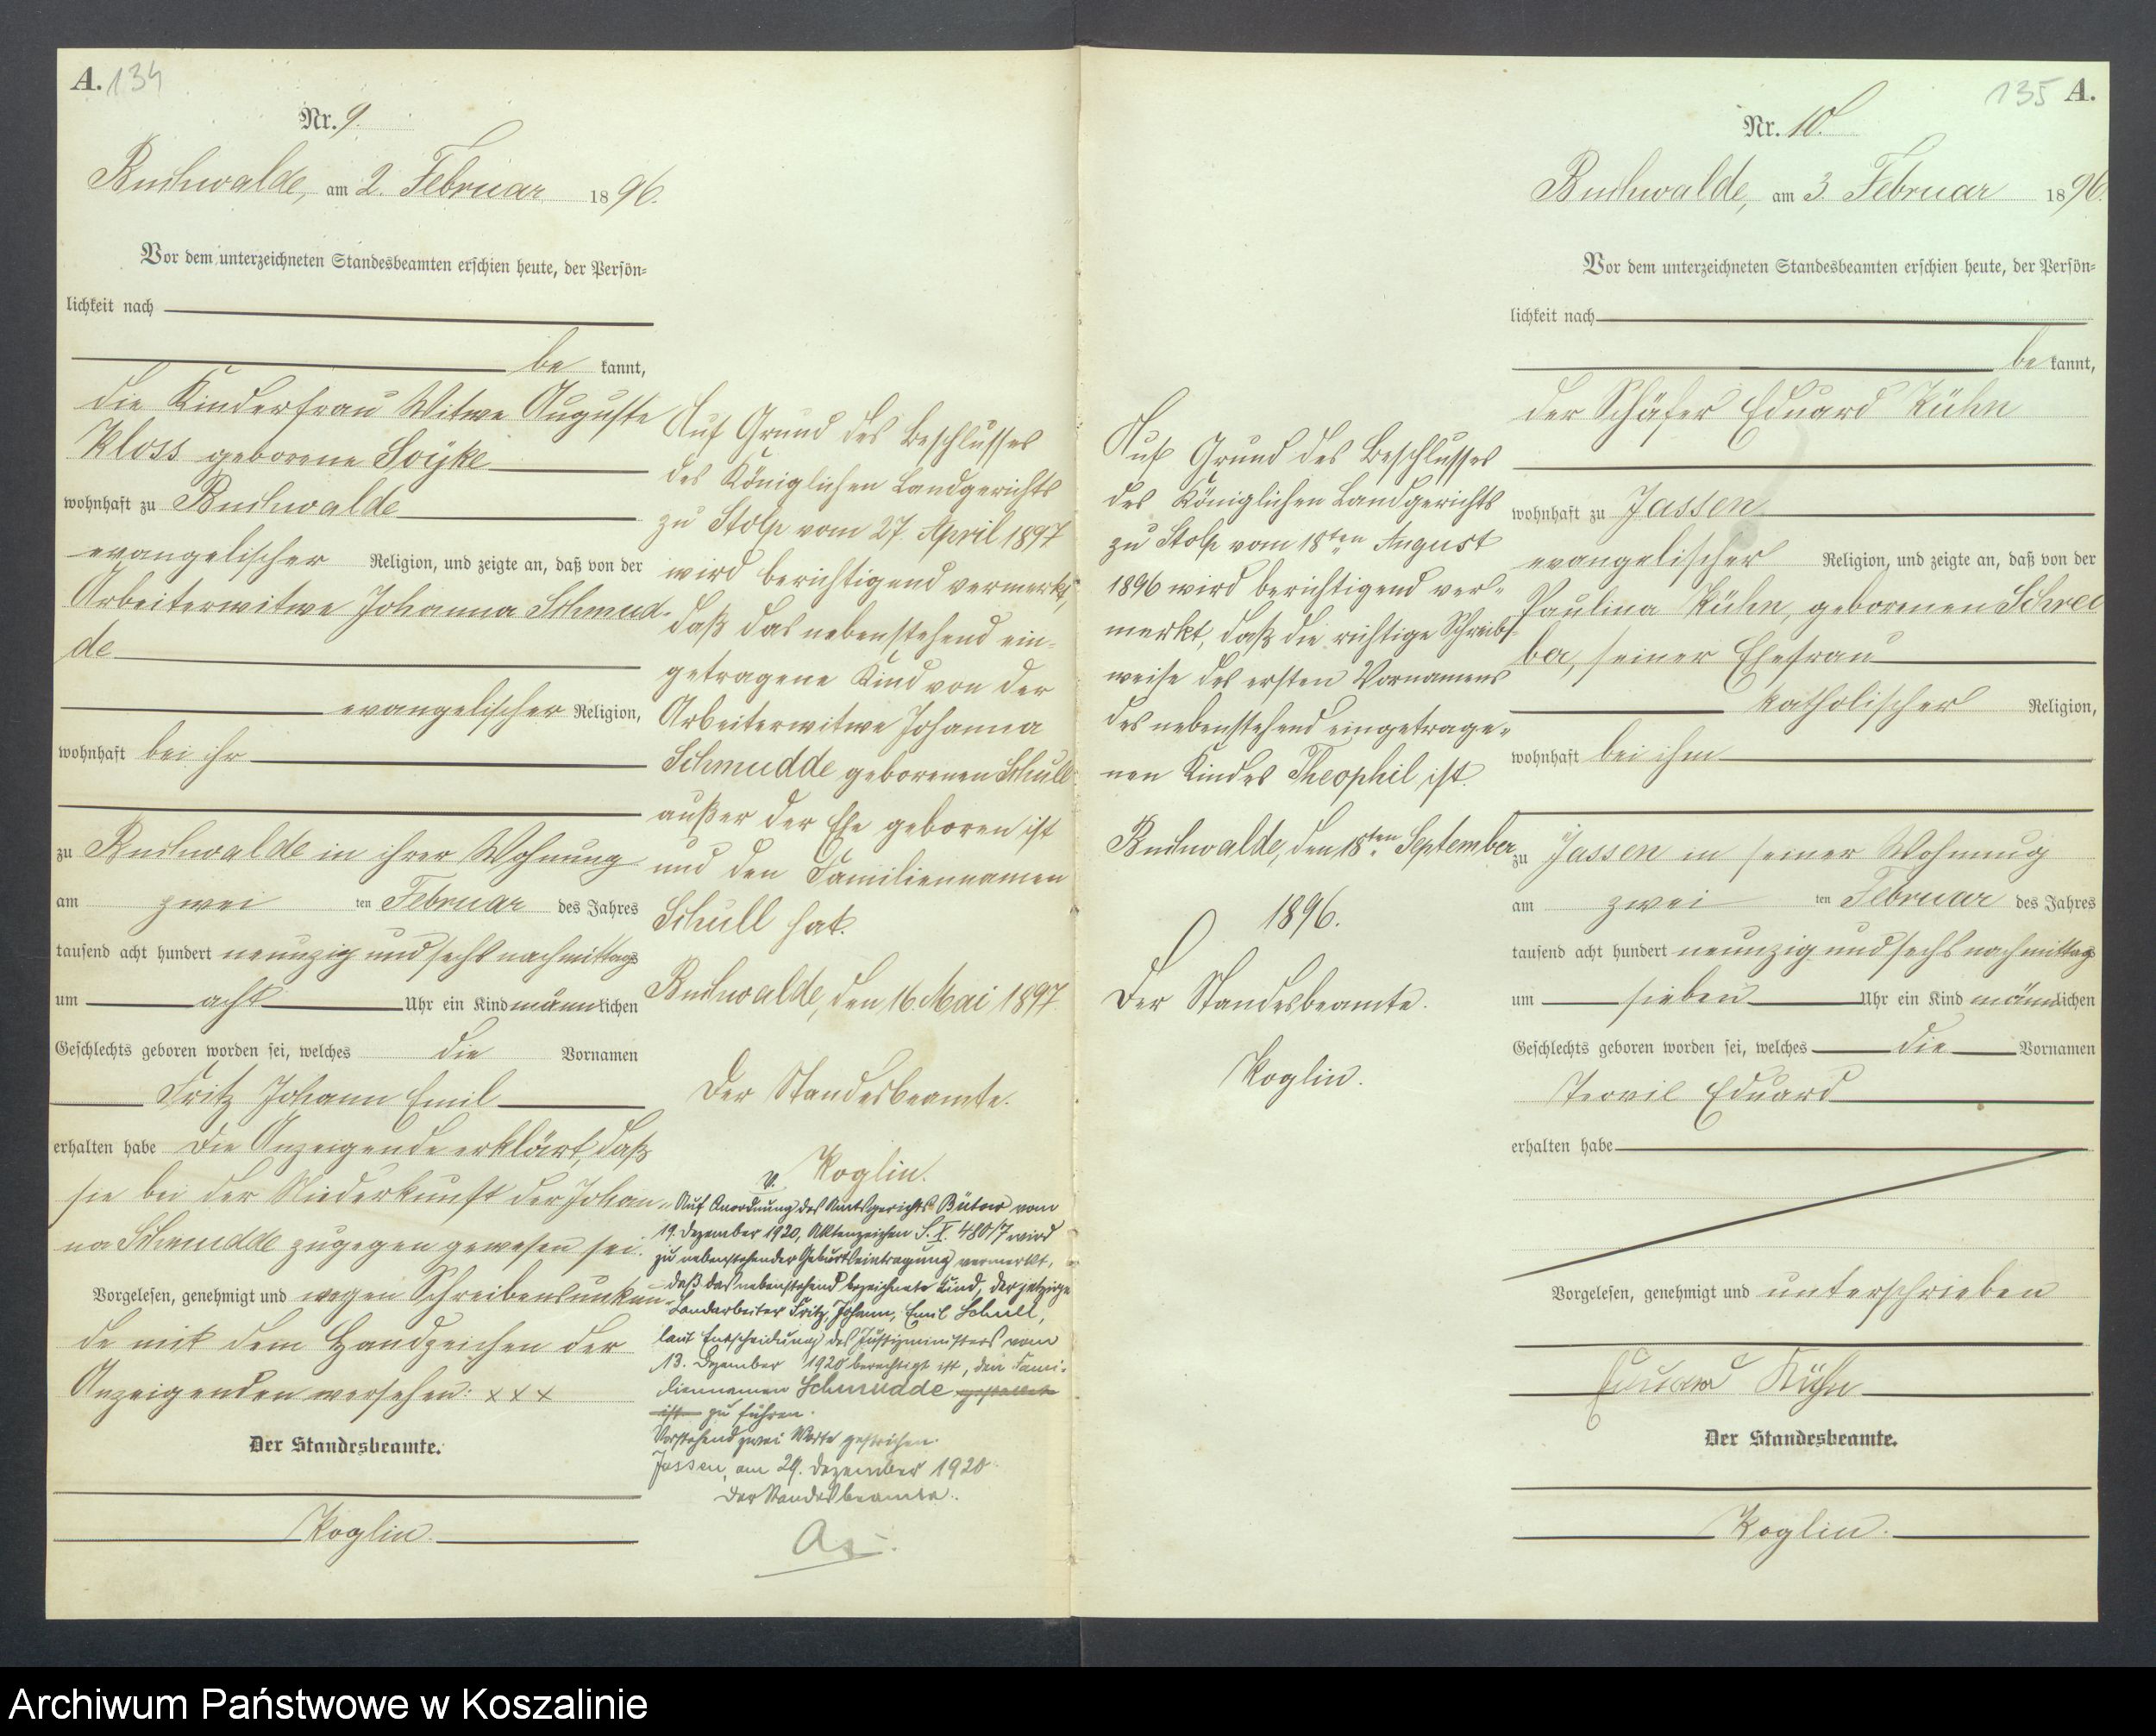 A. 134
Nr. 9.
Buchwalde, am 2. Februar 1896.
Vor dem unterzeichneten Standesbeamten erschien heute, der Persön=
lichkeit nach
be kannt,
die Kinderfrau Witwe Auguste
Kloss geborene Soÿke
wohnhaft zu Buchwalde
evangelischer Religion, und zeigte an, daß von der
Arbeiterwitwe Johanna Schmud-
de
evangelischer Religion,
wohnhaft bei ihr
zu Buchwalde in ihrer Wohnung
am zwei ten Februar des Jahres
tausend acht hundert neunzig und sechs nachmittags
um acht Uhr ein Kind männlichen
Geschlechts geboren worden sei, welches die Vornamen
Fritz Johann Emil
erhalten habe Die Anzeigende erklärt, daß
sie bei der Niederkunft der Johan-
na Schmudde zugegen gewesen sei.
Vorgelesen, genehmigt und wegen Schreibensunkun-
de mit dem Handzeichen der
Anzeigenden versehen: x x x
Der Standesbeamte.
Koglin.
Auf Grund des Beschlusses
des Königlichen Landgerichts
zu Stolp vom 27. April 1897
wird berichtigend vermerkt,
daß das nebenstehend ein-
getragene Kind von der
Arbeiterwitwe Johanna
Schmudde geborenen Schull
außer der Ehe geboren ist
und den Familiennamen
Schull hat.
Buchwalde, den 16. Mai 1897.
Der Standesbeamte.
Koglin.
v.
Auf Anordnung des Amtsgerichts Bütow vom
19. Dezember 1920, Aktenzeichen S. I. 480/7 wird
zu nebenstehender Geburtseintragung vermerkt,
daß das nebenstehend bezeichnete Kind, der jetzige
Landarbeiter Fritz, Johann, Emil Schull,
laut Entscheidung des Justizministers vom
13. Dezember 1920 berechtigt ist, den Fami-
liennamen Schmudde gestattet
ist zu führen.
Vorstehend zwei Worte gestrichen.
Jassen, am 29. Dezember 1920.
Der Standesbeamte.
135 A.
Nr. 10.
Buchwalde, am 3. Februar 1896.
Vor dem unterzeichneten Standesbeamten erschien heute, der Persön=
lichkeit nach
be kannt,
der Schäfer Eduard Kühn
wohnhaft zu Jassen
evangelischer Religion, und zeigte an, daß von der
Paulina Kühn, geborenen Schrei
ber, seiner Ehefrau
katholischer Religion,
wohnhaft bei ihm
zu Jassen in seiner Wohnung
am zwei ten Februar des Jahres
tausend acht hundert neunzig und sechs nachmittags
um sieben Uhr ein Kind männlichen
Geschlechts geboren worden sei, welches die Vornamen
Teovil Eduard
erhalten habe
Vorgelesen, genehmigt und unterschrieben
Eduard Kühn
Der Standesbeamte.
Koglin.
Auf Grund des Beschlusses
des Königlichen Landgerichts
zu Stolp vom 18ten August
1896 wird berichtigend ver-
merkt, daß die richtige Schreib-
weise des ersten Vornamens
des nebenstehend eingetrage-
nen Kindes Theophil ist.
Buchwalde, den 18ten September
1896.
Der Standesbeamte.
Koglin.
Archiwum Państwowe w Koszalinie